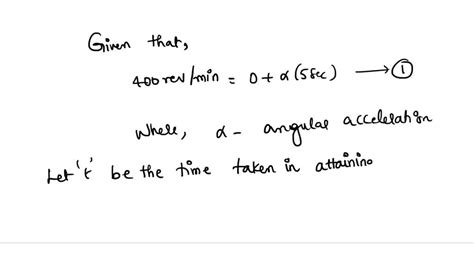 Given that,
400 rev/min = 0 + α (5 sec) ⟶ ①
Where, α - angular acceleration
Let 't' be the time taken in attaining